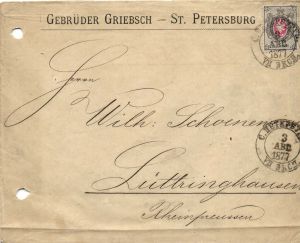 GEBRÜDER GRIEBSCH — ST. PETERSBURG
1877
Herrn
Wilh. Schoenen
3
АВГ
1877
Lüttringhausen
Rheinpreussen